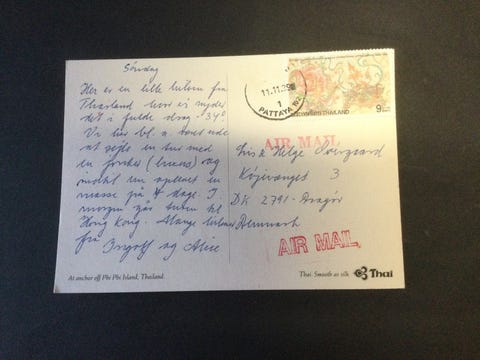 Søndag
Her er en lille hilsen fra
Thailand hvor vi nyder
det i fulde drag. 34°
Vi har bl. a. været ude
at sejle en tur med
en junke (luksus) og
indtil nu oplevet en
masse på 4 dage. I
morgen går turen til
Hong Kong. Mange hilsner
fra Ingolf og Alice
At anchor off Phi Phi Island, Thailand.
11.11.25
1
PATTAYA
THAILAND
9
AIR MAIL
Lis & Helge Overgaard
Køjevænget 3
DK 2791 - Dragør
Danmark
AIR MAIL
Thai. Smooth as silk.
Thai